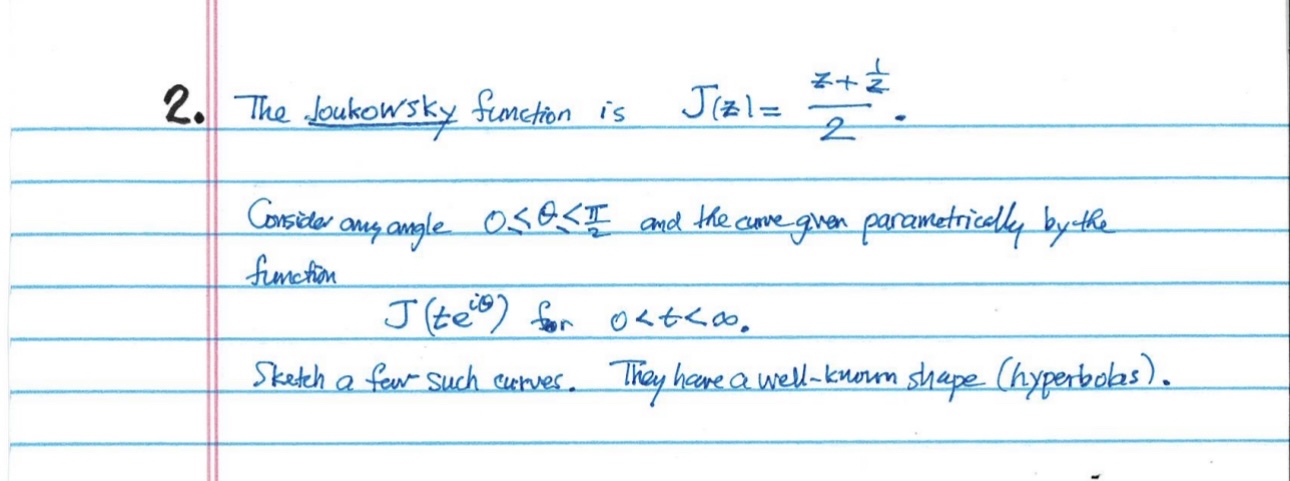 2. The Joukowsky function is J(z) = (z + 1/z)/2.
Consider any angle 0 ≤ θ ≤ π/2 and the curve given parametrically by the
function
J(te^{iθ}) for 0 < t < ∞.
Sketch a few such curves. They have a well-known shape (hyperbolas).